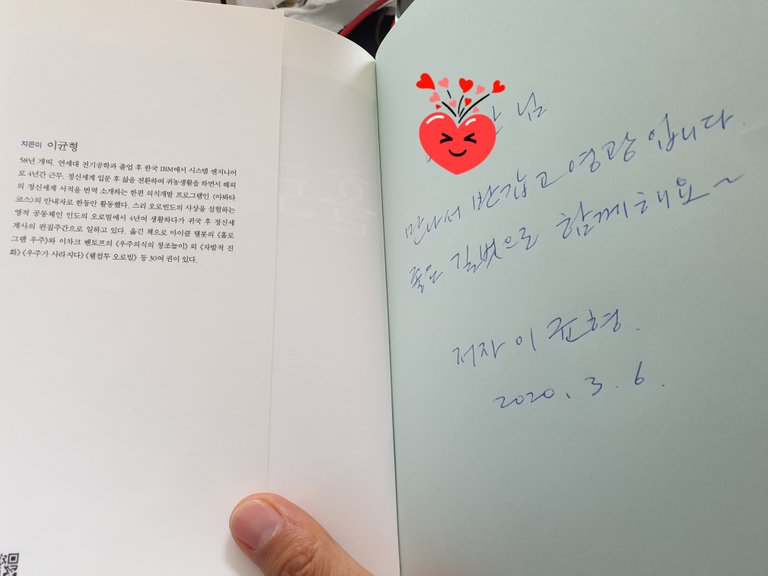 지은이 이균형
58년 개띠. 연세대 전기공학과 졸업 후 한국 IBM에서 시스템 엔지니어
로 4년간 근무. 정신세계 입문 후 삶을 전환하여 귀농생활을 하면서 해외
의 정신세계 서적을 번역 소개하는 한편 의식개발 프로그램인 《아봐타
코스》의 안내자로 한동안 활동했다. 스리 오로빈도의 사상을 실험하는
영적 공동체인 인도의 오로빌에서 4년여 생활하다가 귀국 후 정신세
계사의 편집주간으로 일하고 있다. 옮긴 책으로 마이클 탤봇의 《홀로
그램 우주》와 이차크 벤토프의 《우주의식의 창조놀이》 외 《자발적 진
화》 《우주가 사라지다》 《웰컴투 오로빌》 등 30여 권이 있다.
님
만나서 반갑고 영광입니다.
좋은 길벗으로 함께해요~
저자 이균형.
2020. 3. 6.